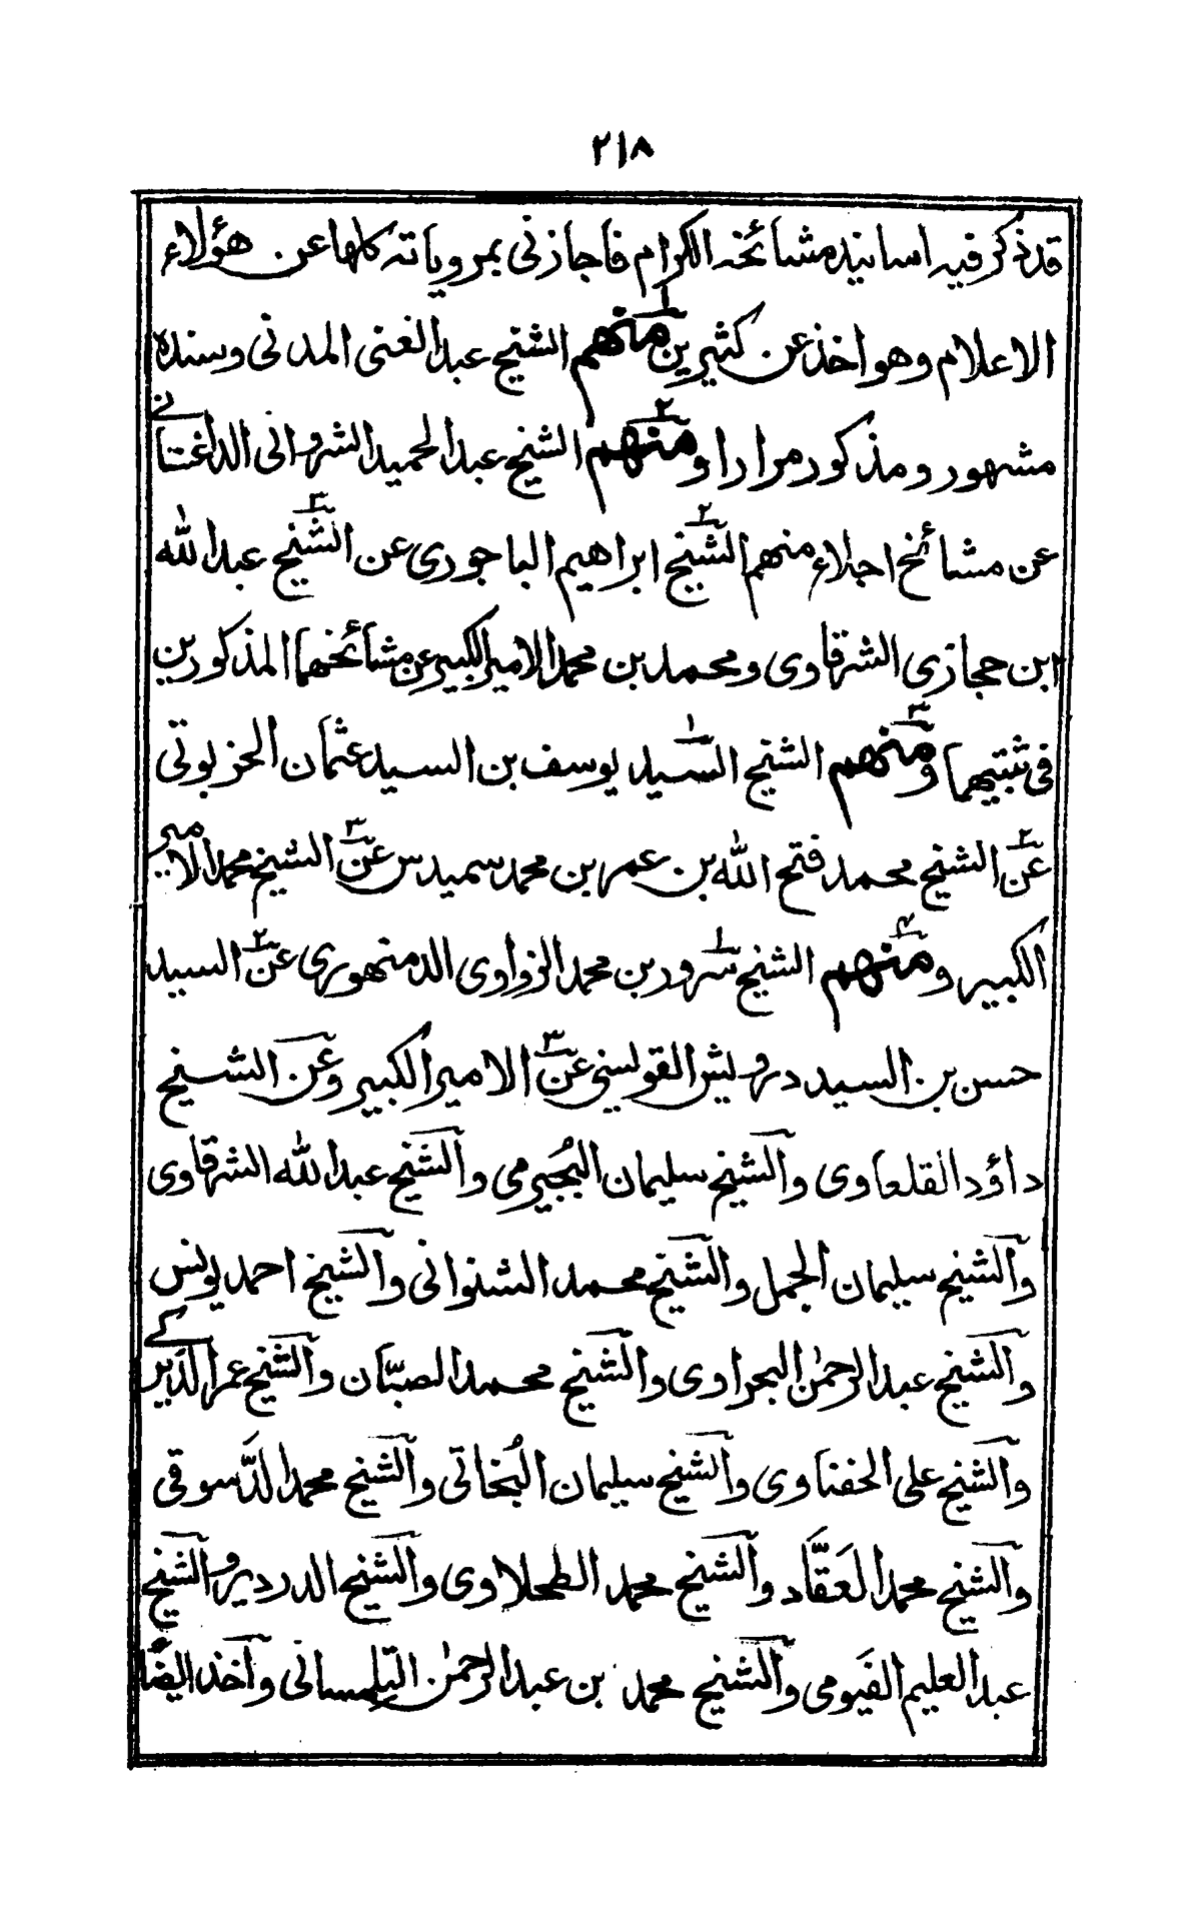 ٢١٨
قد ذكر فيه اسانيده مشائخه الكرام فاجازني بمروياته كلها عن هؤلاء
الاعلام وهو اخذ عن كثيرين منهم الشيخ عبد الغنى المدنى وسنده
مشهور ومذكور مرارا ومنهم الشيخ عبد الحميد الشروانى الداغستانے
عن مشائخ اجلاء منهم الشيخ ابراهيم الباجورى عن الشيخ عبد الله
ابن حجازى الشرقاوى ومحمد بن محمد الامير الكبير عن مشائخهما المذكورين
فى ثبتيهما ومنهم الشيخ السيد يوسف بن السيد عثمان الخربوتى
عن الشيخ محمد فتح الله بن عمر بن محمد سميدس عن الشيخ محمد الامير
الكبير ومنهم الشيخ سرور بن محمد الزواوى الدمنهورى عن السيد
حسن بن السيد درويش القويسنى عن الامير الكبير وعن الشيخ
داؤد القلعاوى والشيخ سليمان البُجَيرمى والشيخ عبد الله الشرقاوى
والشيخ سليمان الجمل والشيخ محمد الشنوانى والشيخ احمد يونس
والشيخ عبد الرحمٰن البحراوى والشيخ محمد الصبّان والشيخ عمر الدَيربے
والشيخ على الحفناوى والشيخ سليمان البُخاتى والشيخ محمد الدَّسوقى
والشيخ محمد العَقَّاد والشيخ محمد الطحلاوى والشيخ الدردير والشيخ
عبد العليم الفَيومى والشيخ محمد بن عبد الرحمٰن التلمسانى وآخذ ايضًا